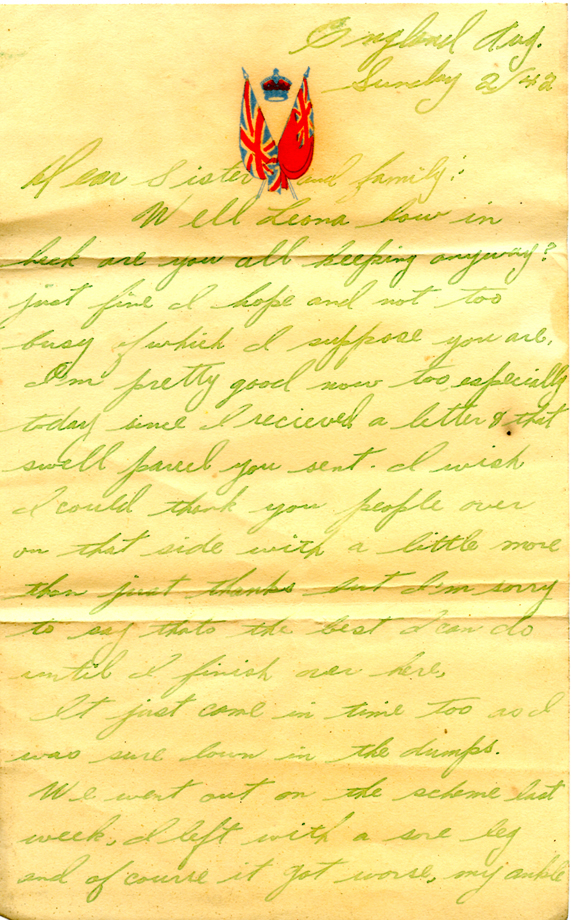 England Aug.
Sunday 2/42
Dear Sister and family:
Well Leona how in
heck are you all keeping anyway?
just fine I hope and not too
busy of which I suppose you are.
I'm pretty good now too especially
today since I recieved a letter & that
swell parcel you sent. I wish
I could thank you people over
on that side with a little more
than just thanks but I'm sorry
to say thats the best I can do
until I finish over here.
It just came in time too as I
was sure down in the dumps.
We went out on the scheme last
week. I left with a sore leg
and of course it got worse, my ankle